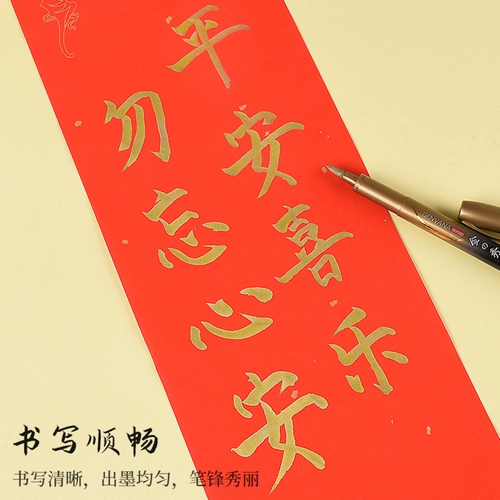 平安喜乐
勿忘心安
GENVANA
金の秀
书写顺畅
书写清晰，出墨均匀，笔锋秀丽